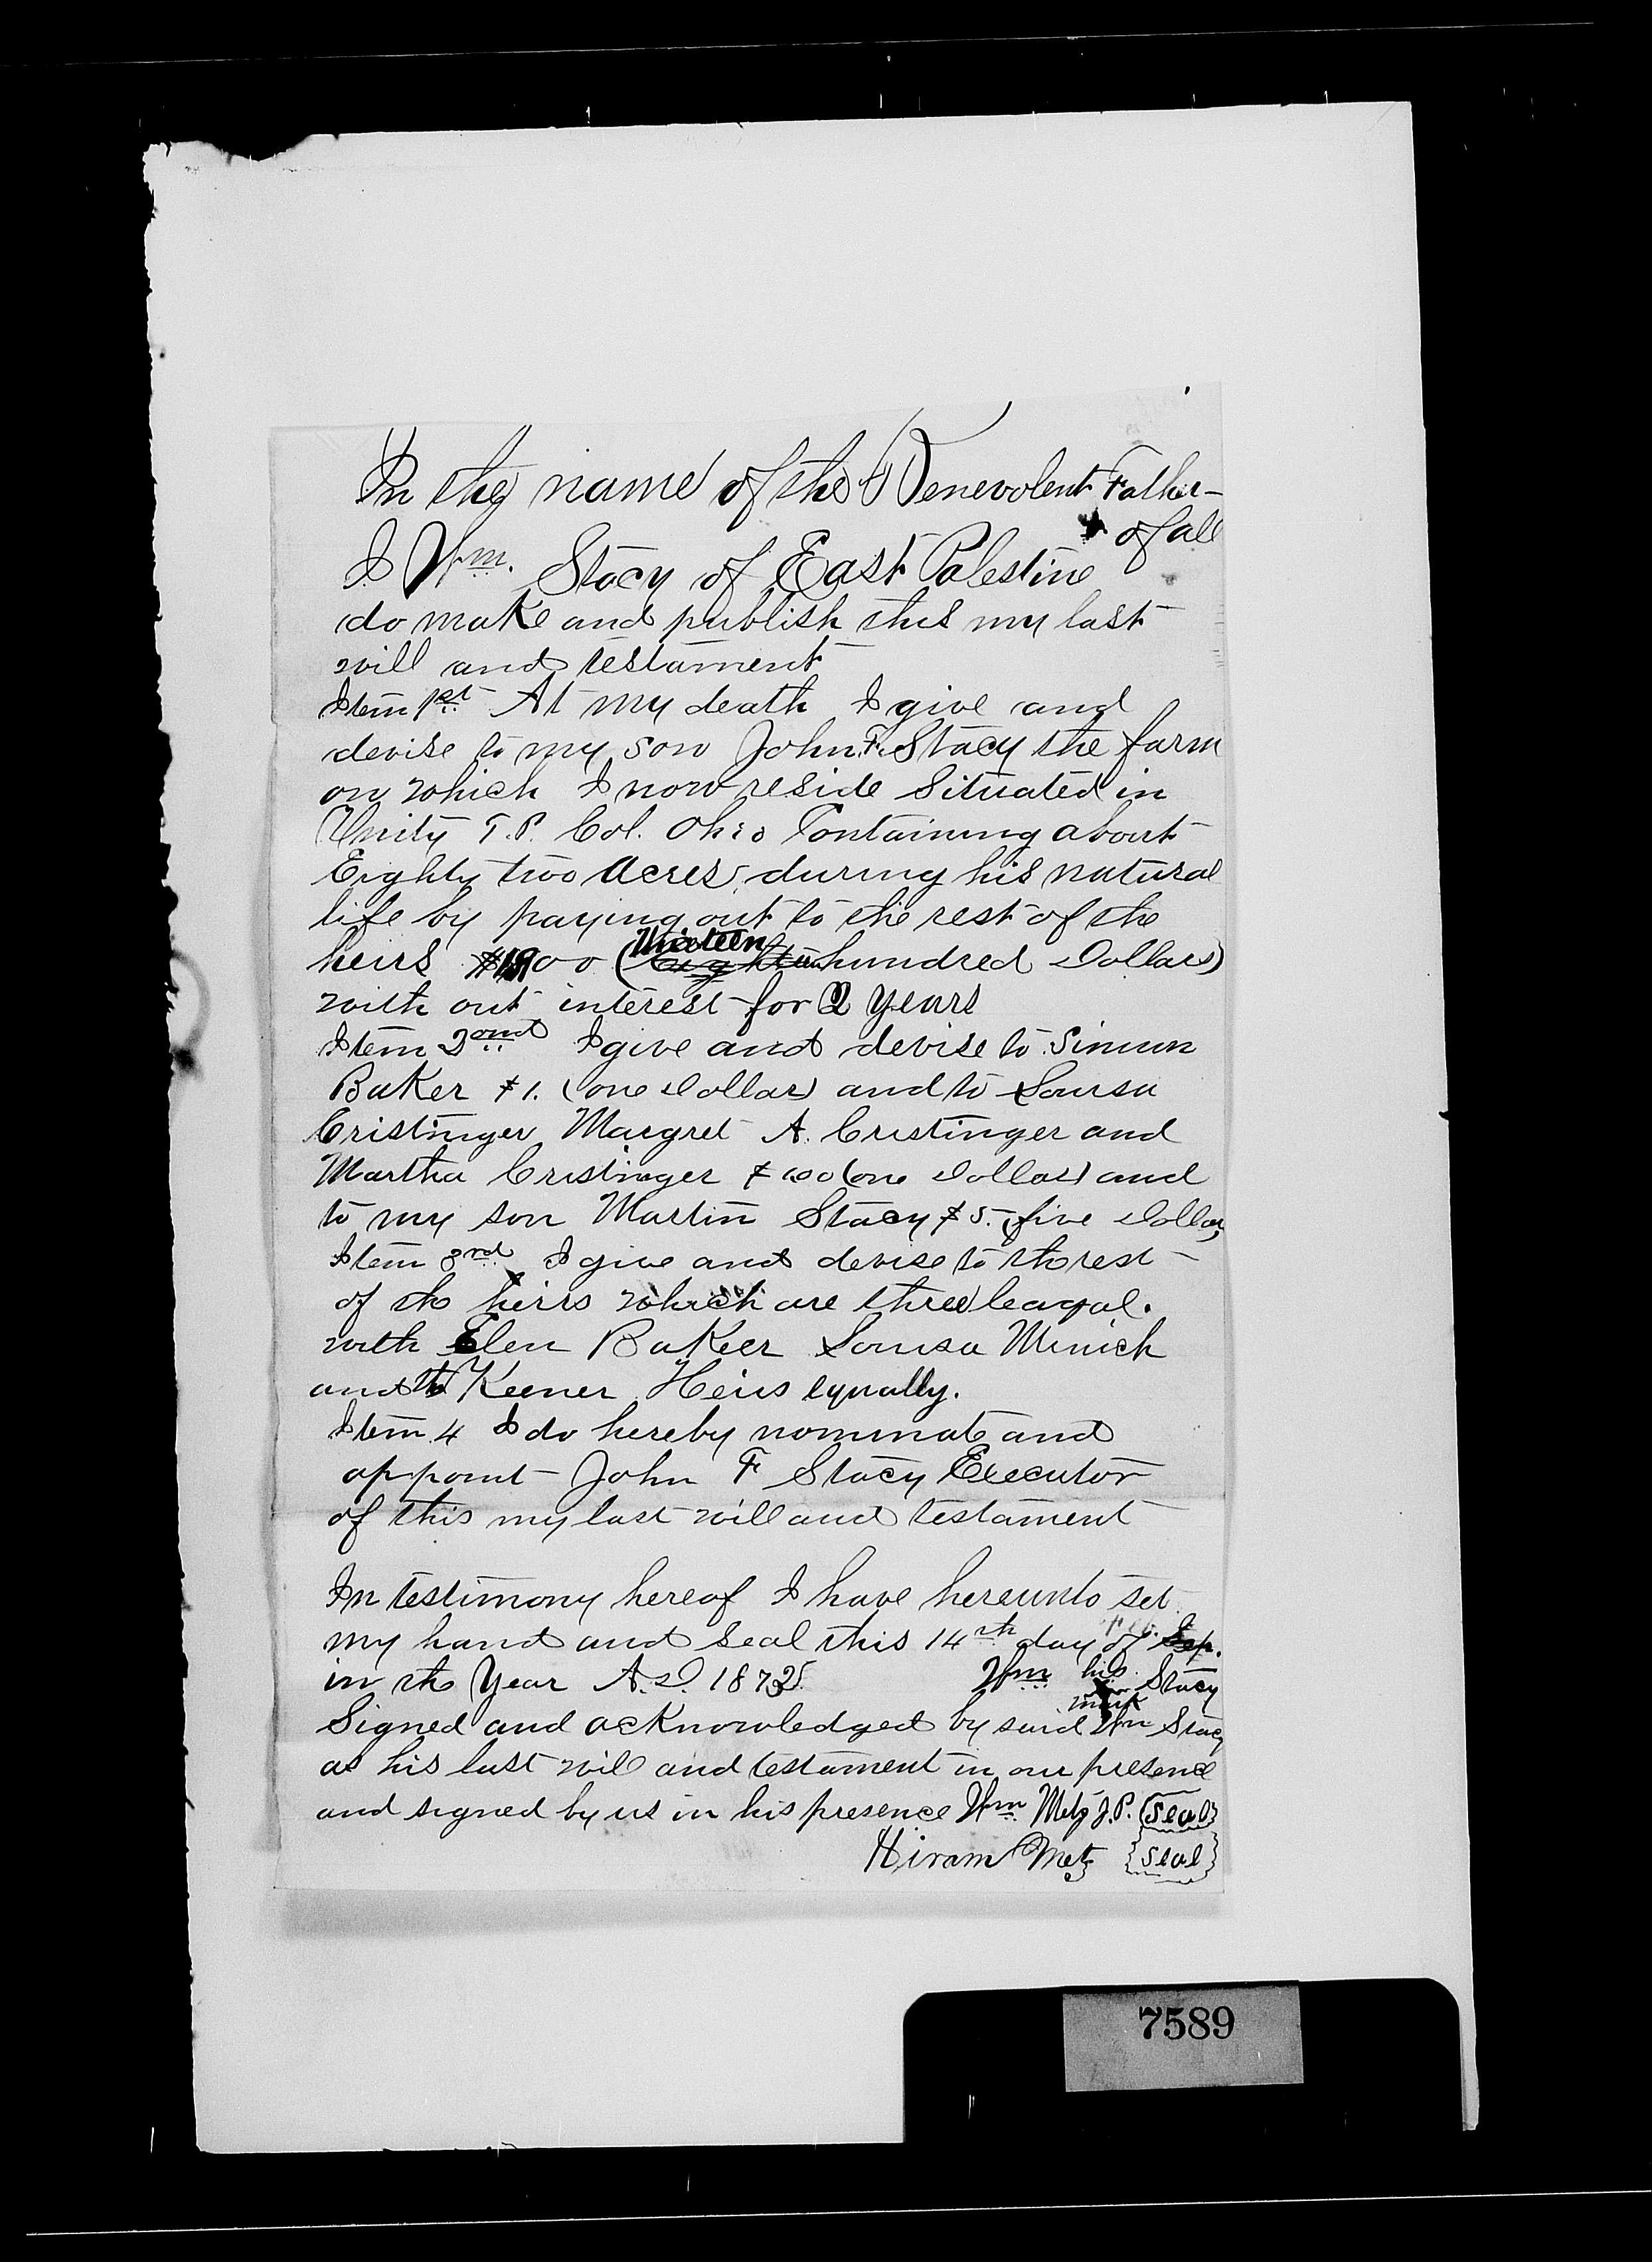 In the name of the Benevolent Father
of all
I Wm. Stacy of East Palestine
do make and publish this my last
will and testament
Item 1st At my death I give and
devise to my son John F. Stacy the farm
on which I now reside Situated in
Unity T.P. Col. Ohio Containing about
Eighty two Acres during his natural
life by paying out to the rest of the
heirs 00 ( hundred Dollars)
with out interest for 2 years
Item 2ond I give and devise to Simion
Baker $1. (one Dollar) and to Lousa
Cristinger Margret A. Cristinger and
Martha Cristinger (one Dollar) and
to my son Martin Stacy $5. (five Dollar,
Item 3rd I give and devise to the rest
of the heirs which are three leagal.
with Elen Baker Lousa Minich
and Keener Heirs equally.
Item 4 I do hereby nominate and
appoint John F Stacy Executor
of this my last will and testament
In testimony hereof I have hereunto set
my hand and seal this 14th day of Feb. Sep.
in the Year A.D. 187 Wm his Stacy
mark
Signed and acknowledged by said Wm Stacy
as his last will and testament in our presence
and signed by us in his presence Wm Metz J.P. (Seal)
Hiram Metz {Seal}
7589